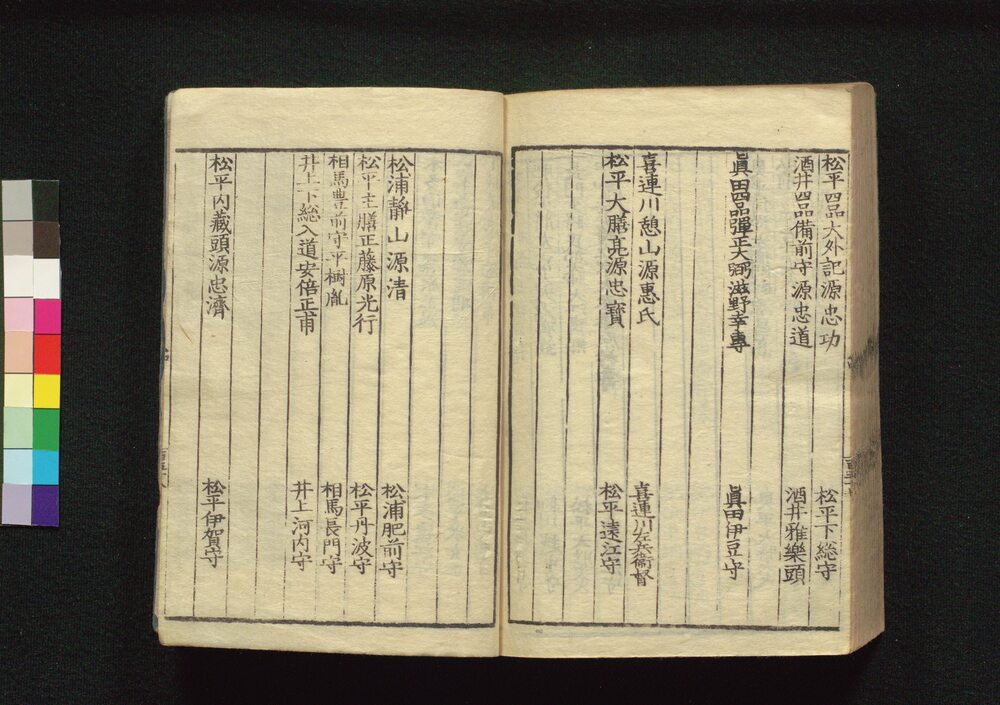 松平四品大外記源忠功 松平下総守
酒井四品備前守源忠道 酒井雅樂頭
眞田四品彈正大弼滋野幸專 眞田伊豆守
喜連川憩山源惠氏 喜連川左兵衞督
松平大膳亮源忠寶 松平遠江守
松浦靜山源清 松浦肥前守
松平主膳正藤原光行 松平丹波守
相馬豊前守平樹胤 相馬長門守
井上下総入道安倍正甫 井上河内守
松平内藏頭源忠濟 松平伊賀守